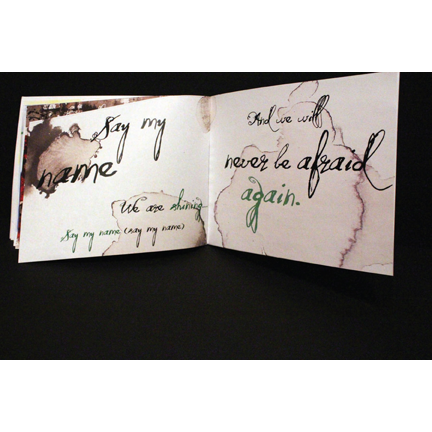 Say my
name
We are shining
Say my name (say my name)
And we will
never be afraid
again.